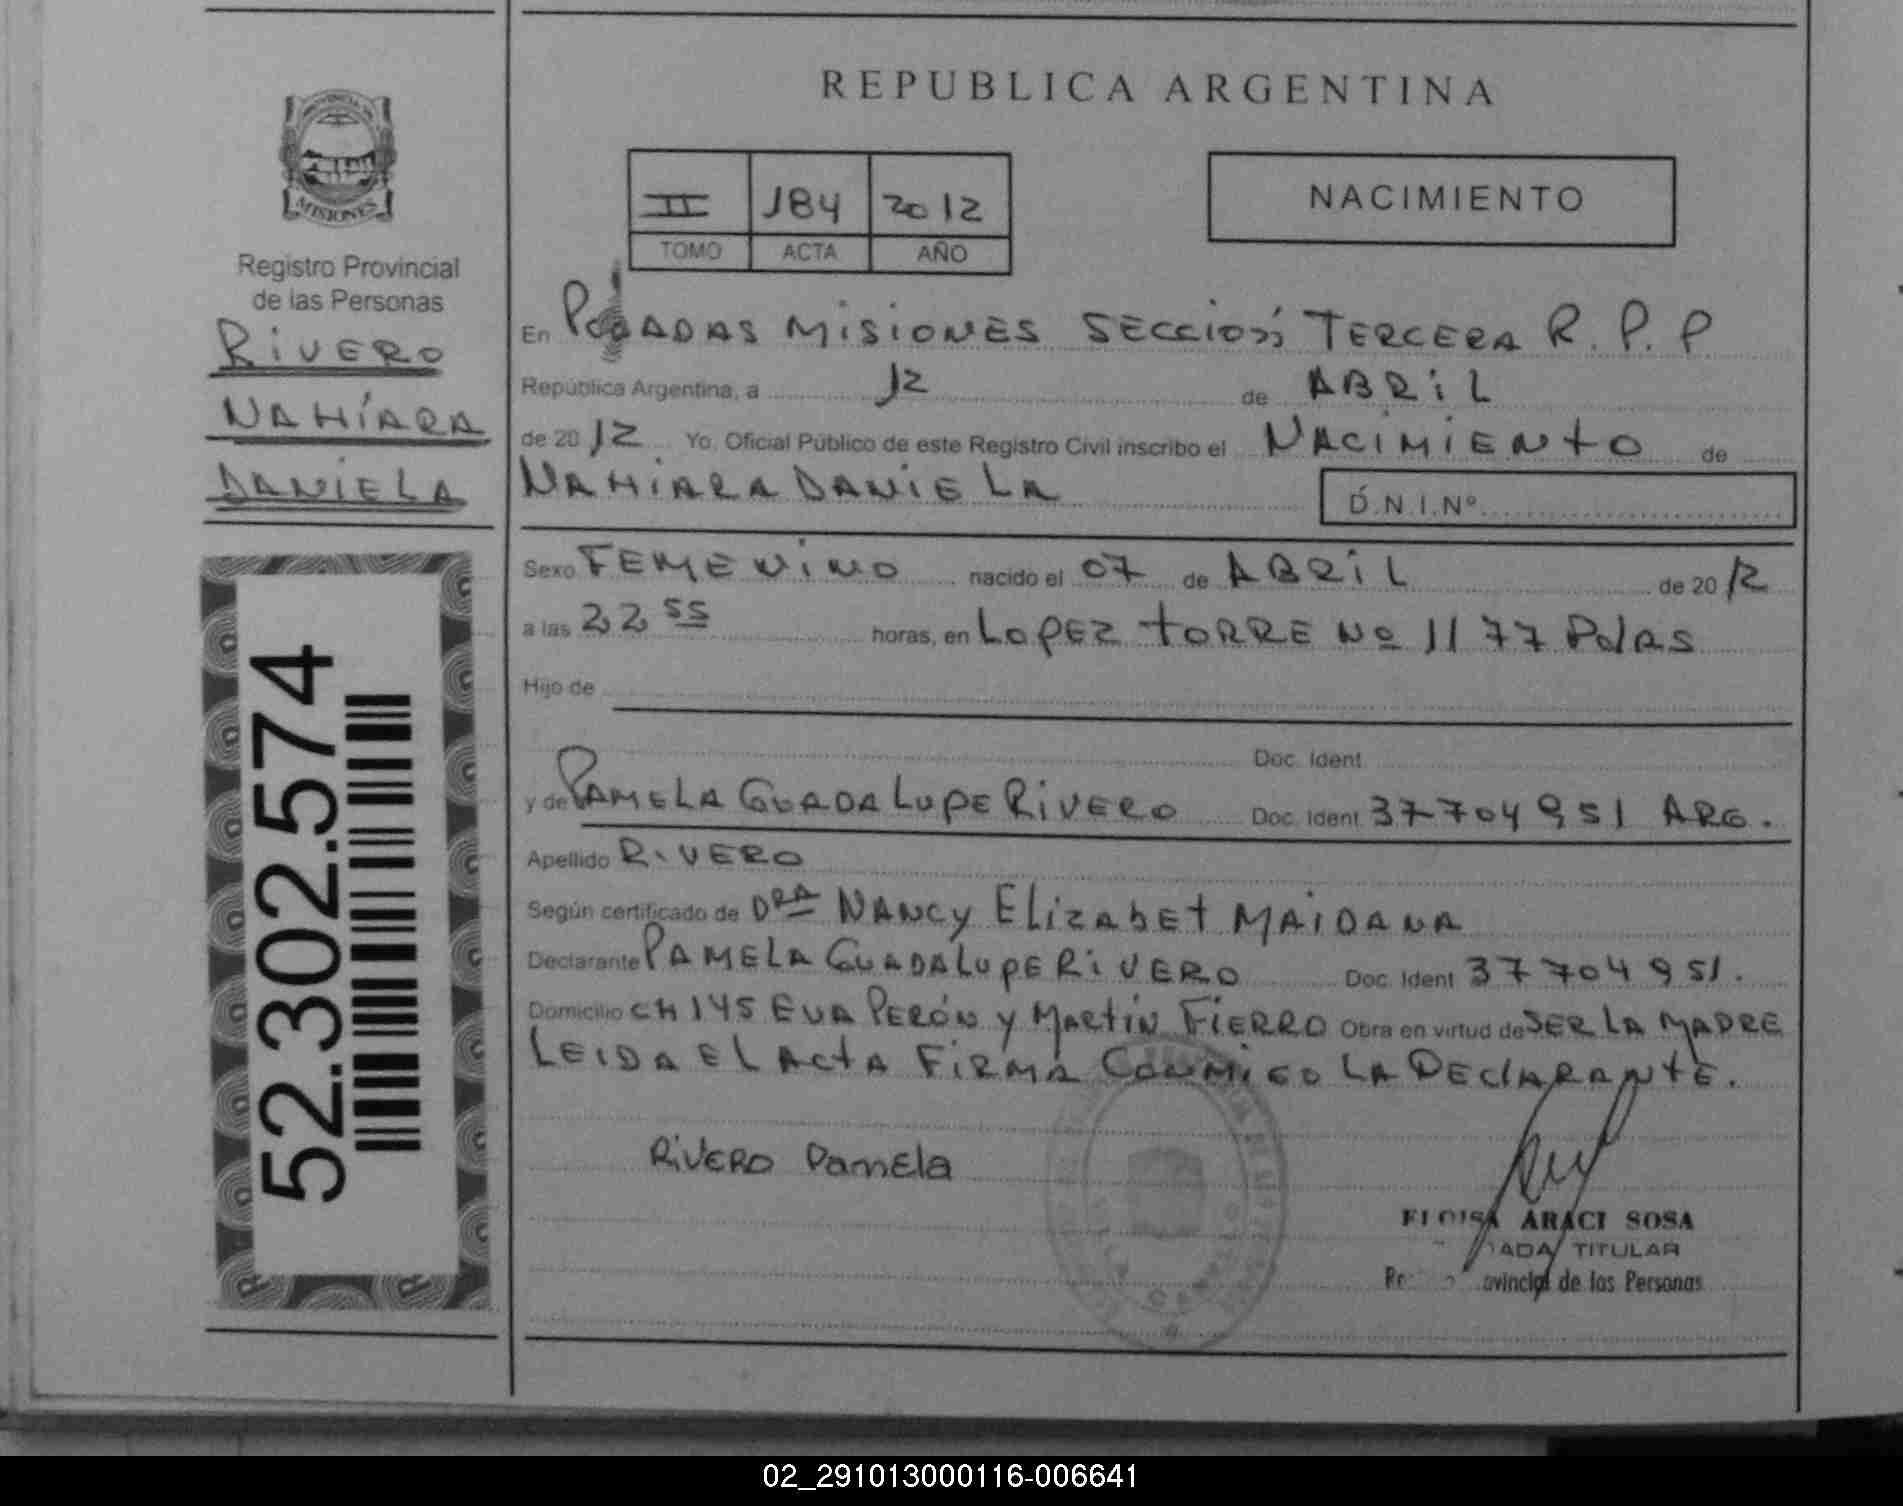 REPUBLICA ARGENTINA
PROVINCIA DE
MISIONES
Registro Provincial
de las Personas
RIVERO
NAHÍARA
DANIELA
52.302.574
II 184 2012
TOMO ACTA AÑO
NACIMIENTO
En POSADAS MISIONES SECCIÓN TERCERA R. P. P
República Argentina, a 12 de ABRIL
de 2012 Yo, Oficial Público de este Registro Civil inscribo el NACIMIENTO de
NAHIARA DANIELA D.N.I.Nº
Sexo FEMENINO nacido el 07 de ABRIL de 2012
a las 22 55 horas, en LOPEZ TORRE Nº 1177 Pdas
Hijo de
Doc. Ident
y de PAMELA GUADALUPE RIVERO Doc. Ident 37704951 ARG.
Apellido RIVERO
Según certificado de DRA NANCY ELIZABET MAIDANA
Declarante PAMELA GUADALUPE RIVERO Doc. Ident 37704951.
Domicilio CH 145 EVA PERÓN Y MARTÍN FIERRO Obra en virtud de SER LA MADRE
LEIDA EL ACTA FIRMA CONMIGO LA DECLARANTE.
RIVERO PamEla
ELOISA ARACI SOSA
TITULAR
de las Personas
02_291013000116-006641